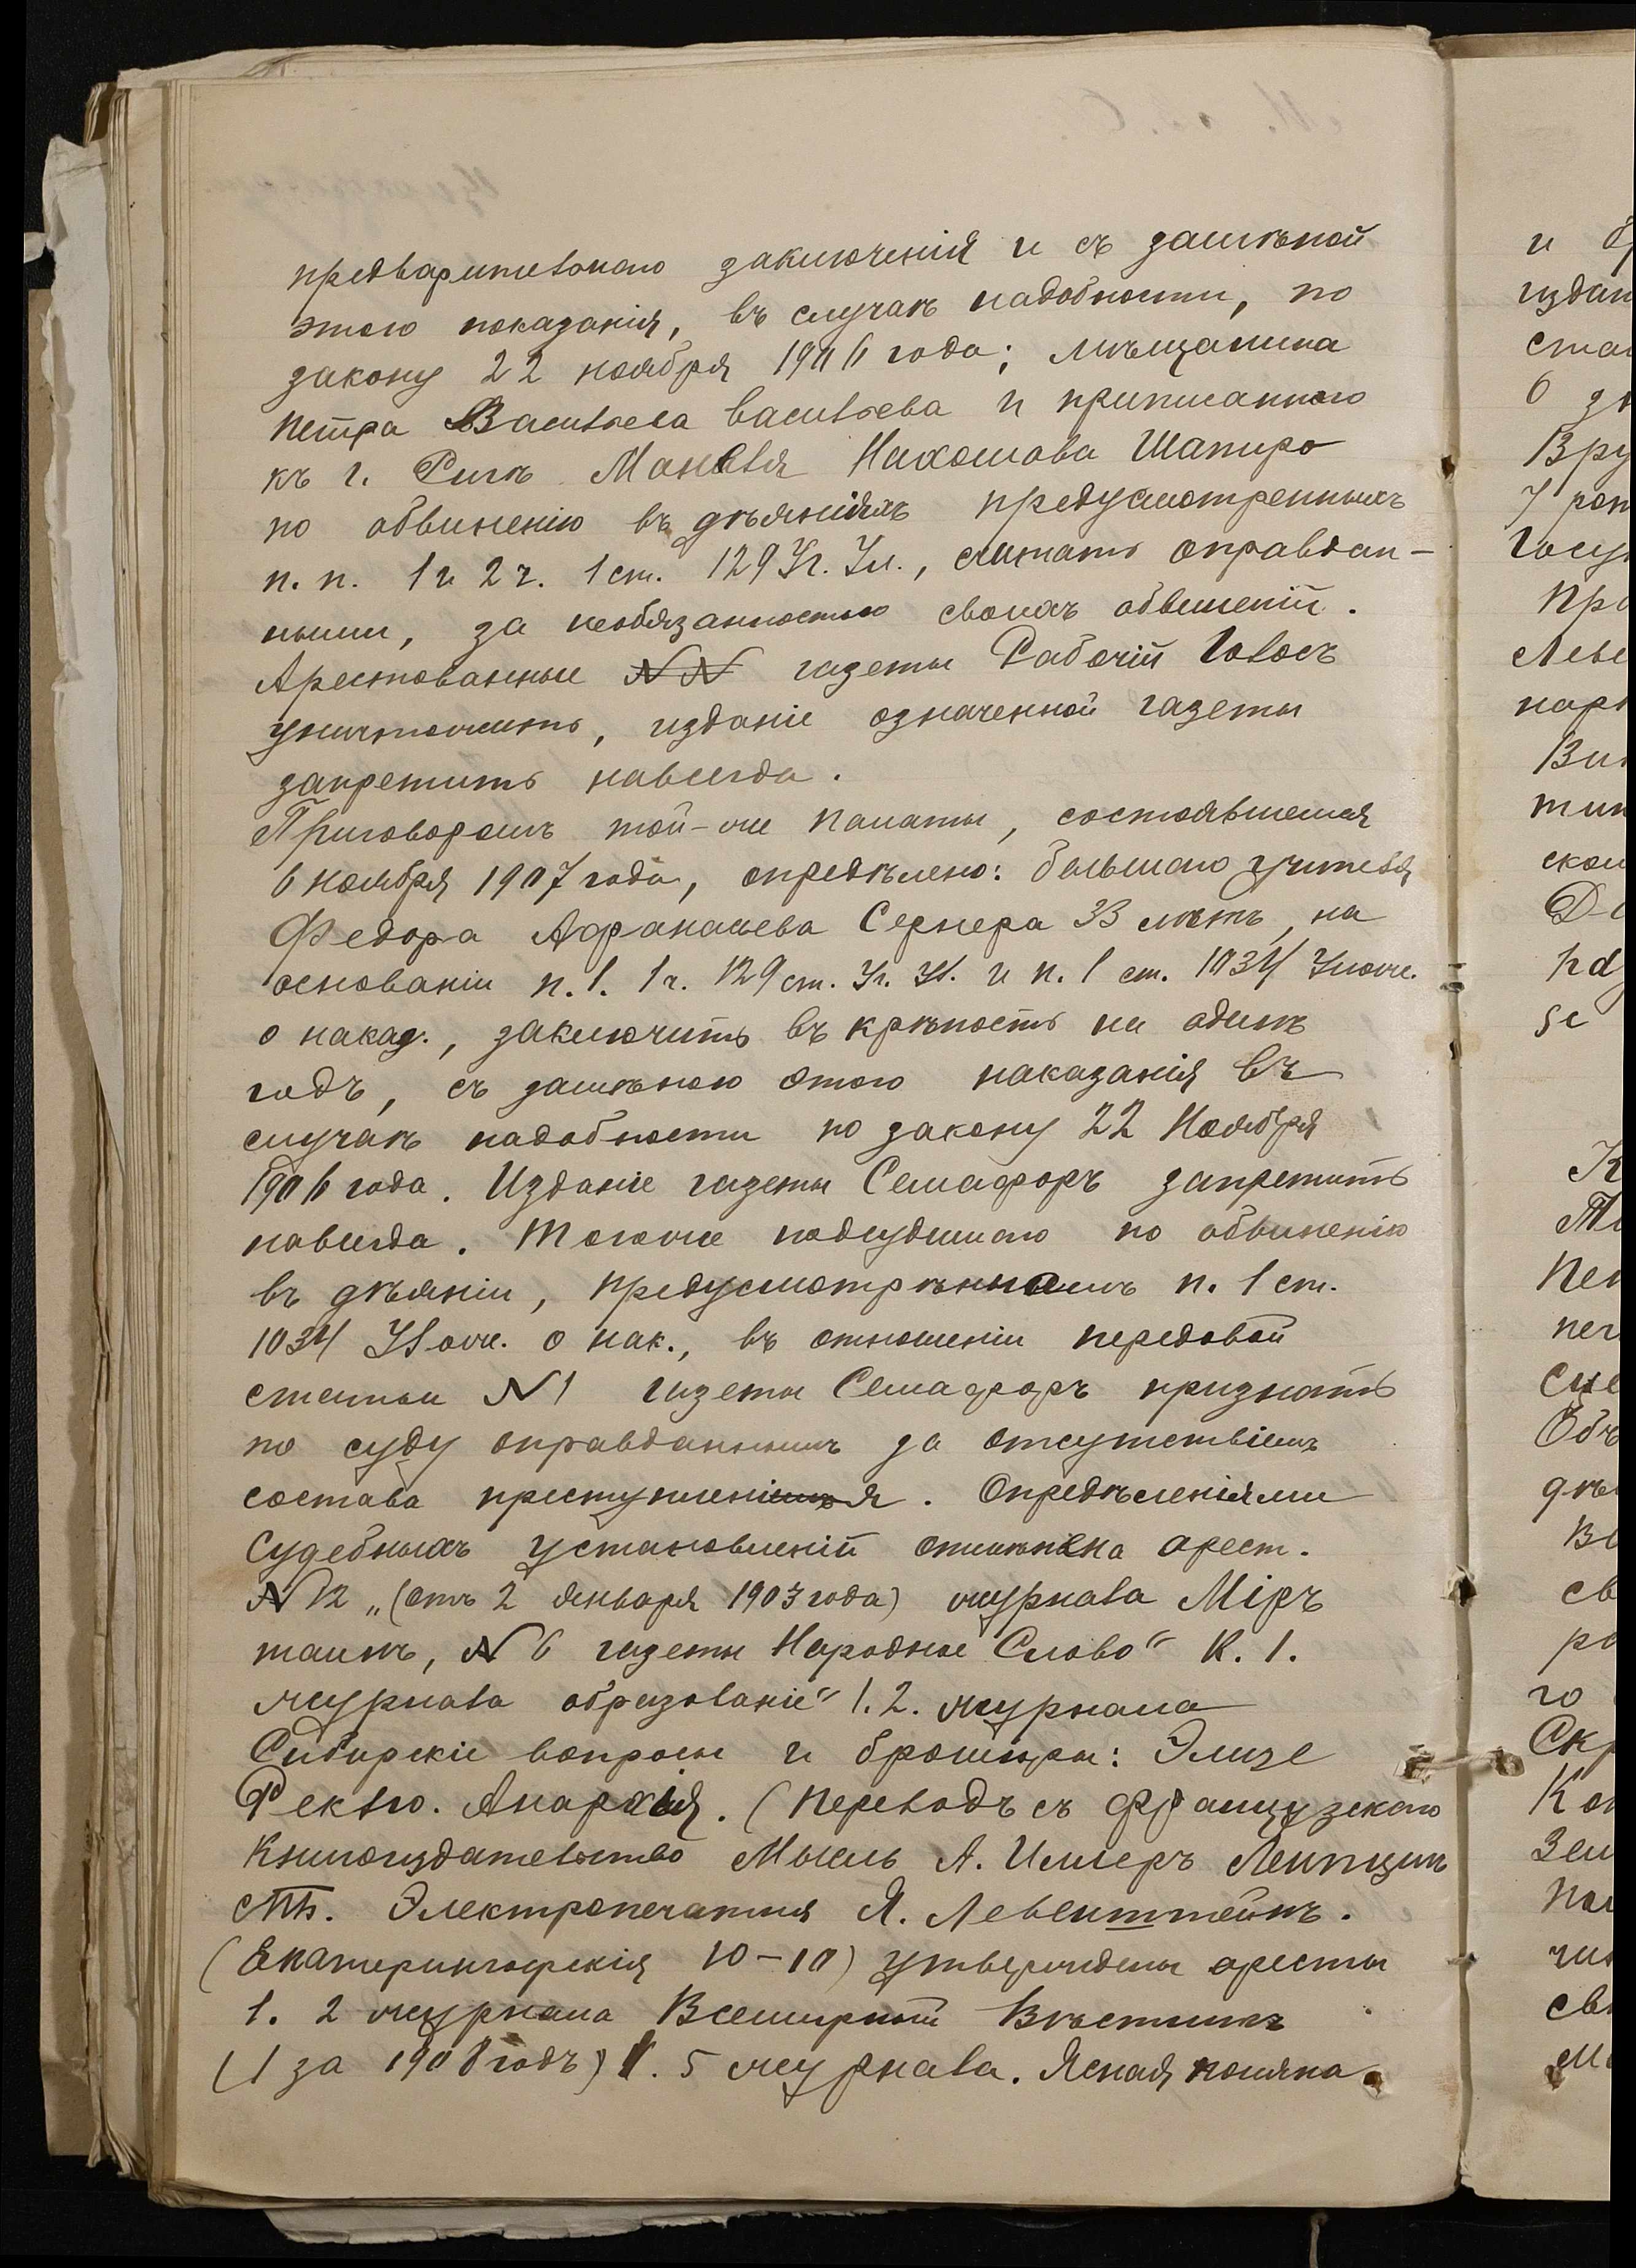 предварительнаго заключенія и съ замѣной
этого показанія, въ случаѣ надобности, по
закону 22 ноября 1906 года; мѣщанина
Петра Васильева Васильева и приписаннаго
къ г. Ригѣ Манеля Нахомова Шапиро
по обвиненію въ дѣяніяхъ предусмотренныхъ
п. п. 1 и 2 ч. 1 ст. 129 Уг. Ул., считать оправдан-
ными, за необязанностью своихъ обвиненій.
Арестованные N N газеты Рабочій Голосъ
уничтожить, изданіе означенной газеты
запретить навсегда.
Приговоромъ той-же Палаты, состоявшемся
6 ноября 1907 года, опредѣлено: бывшаго учителя
Федора Афанасьева Сернера 33 лѣтъ, на
основаніи п. 1. 1 ч. 129 ст. Уг. Ул. и п. 1 ст. 1034 Улож.
о наказ., заключить въ крѣпость на одинъ
годъ, съ замѣною этого наказанія въ
случаѣ надобности по закону 22 Ноября
1906 года. Изданіе газеты Семафоръ запретить
навсегда. Того же подсудимаго по обвиненію
въ дѣяніи, предусмотрѣнномъ п. 1 ст.
1034 Улож. о нак., въ отношеніи передовой
статьи N 1 газеты Семафоръ признать
по суду оправданнымъ за отсутствіемъ
состава преступленія. Опредѣленіями
Судебныхъ установленій отмѣнена арест.
N 12 „(отъ 2 января 1903 года) журнала Міръ
таинъ, N 6 газеты Народное Слово" К. 1.
журнала образованіе" 1. 2. журнала
Сибирскіе вопросы и брошюры: Элизе
Реклю. Анархія. (Переводъ съ французскаго
Книгоиздательство Мысль А. Иммеръ Лейпцигъ
СПБ. Электропечатня Я. Левенштейнъ.
(Екатерингофскія 10-10) утверждены аресты
1. 2 журнала Всемирный Вѣстникъ
(1 за 1908 годъ) 1. 5 журнала. Ясная поляна.